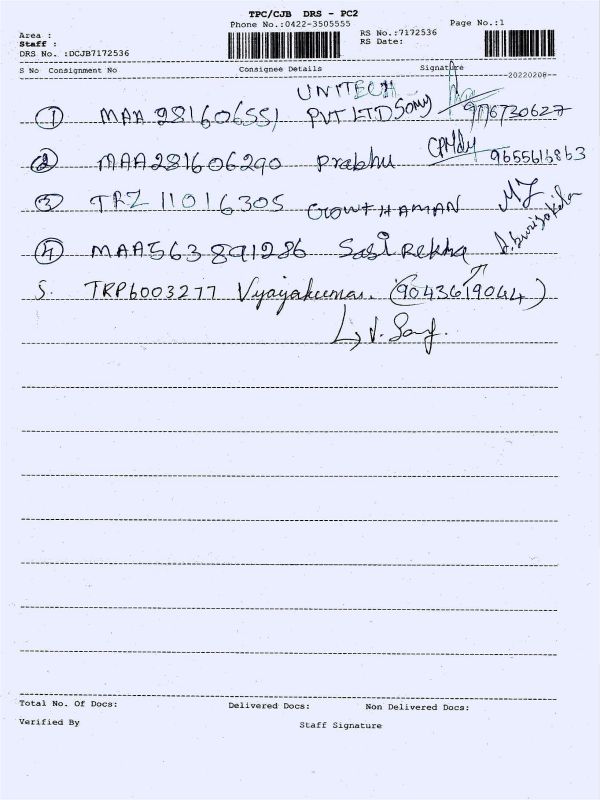 TPC/CJB DRS - PC2
Phone No.:0422-3505555
Page No.:1
Area :
RS No.:7172536
Staff :
RS Date:
DRS No. :DCJB7172536
S No Consignment No Consignee Details Signature
20220208
UNITECH
① MAA 281606551 PVT LTD Somy 9176730627
② MAA281606290 Prabhu 9655616863
③ TRZ 11016305 GOWTHAMAN
④ MAA563891286 Sasirekha
5. TRP6003277 Vijayakumar. (9043619044)
Total No. Of Docs: Delivered Docs: Non Delivered Docs:
Verified By Staff Signature